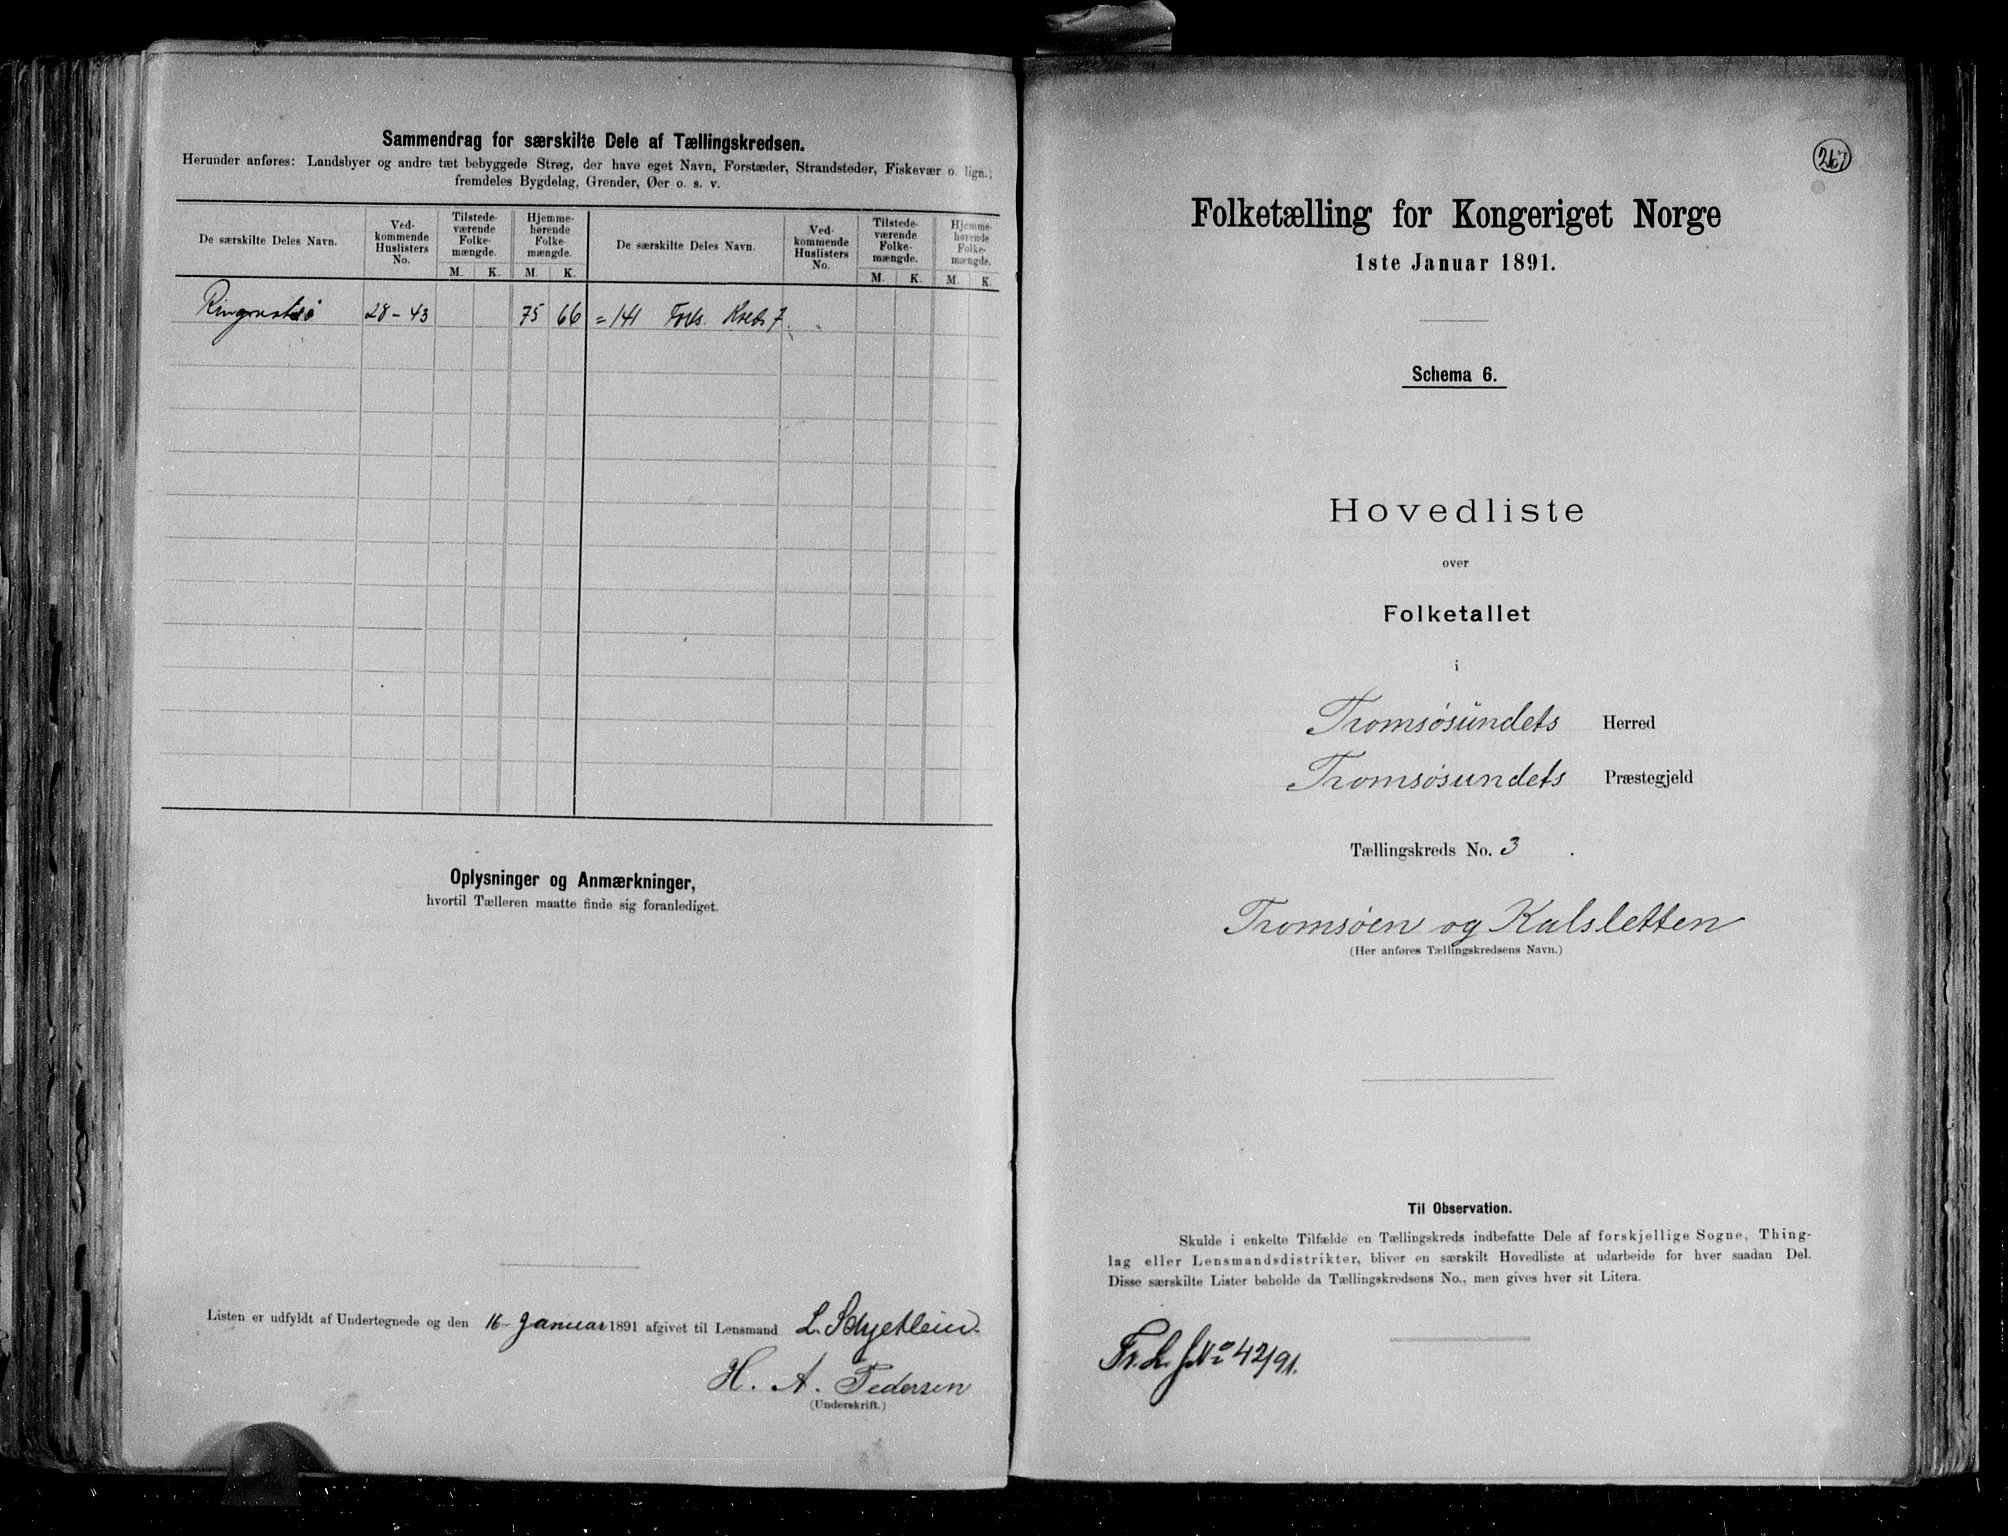 Sammendrag for særskilte Dele af Tællingskredsen.
Herunder anføres: Landsbyer og andre tæt bebyggede Strøg, der have eget Navn, Forstæder, Strandsteder, Fiskevær o. lign.;
fremdeles Bygdelag, Grender, Øer o. s. v.
De særskilte Deles Navn. Ved-kommende Huslisters No. Tilstede-værende Folke-mængde. Hjemme-hørende Folke-mængde. De særskilte Deles Navn. Ved-kommende Huslisters No. Tilstede-værende Folke-mængde. Hjemme-hørende Folke-mængde.
M. K. M. K. M. K. M. K.
28-43 75 66 = 141 Kreds 7.
Oplysninger og Anmærkninger,
hvortil Tælleren maatte finde sig foranlediget.
Listen er udfyldt af Undertegnede og den 16- Januar 1891 afgivet til Lensmand L.
H. A. Pedersen
(Underskrift.)
267
Folketælling for Kongeriget Norge
1ste Januar 1891.
Schema 6.
Hovedliste
over
Folketallet
i
Tromsøsundets Herred
Tromsøsundets Præstegjeld
Tællingskreds No. 3.
Tromsøen og Kalsletten
(Her anføres Tællingskredsens Navn.)
Til Observation.
Skulde i enkelte Tilfælde en Tællingskreds indbefatte Dele af forskjellige Sogne, Thing-
lag eller Lensmandsdistrikter, bliver en særskilt Hovedliste at udarbeide for hver saadan Del.
Disse særskilte Lister beholde da Tællingskredsens No., men gives hver sit Litera.
No 42/91.